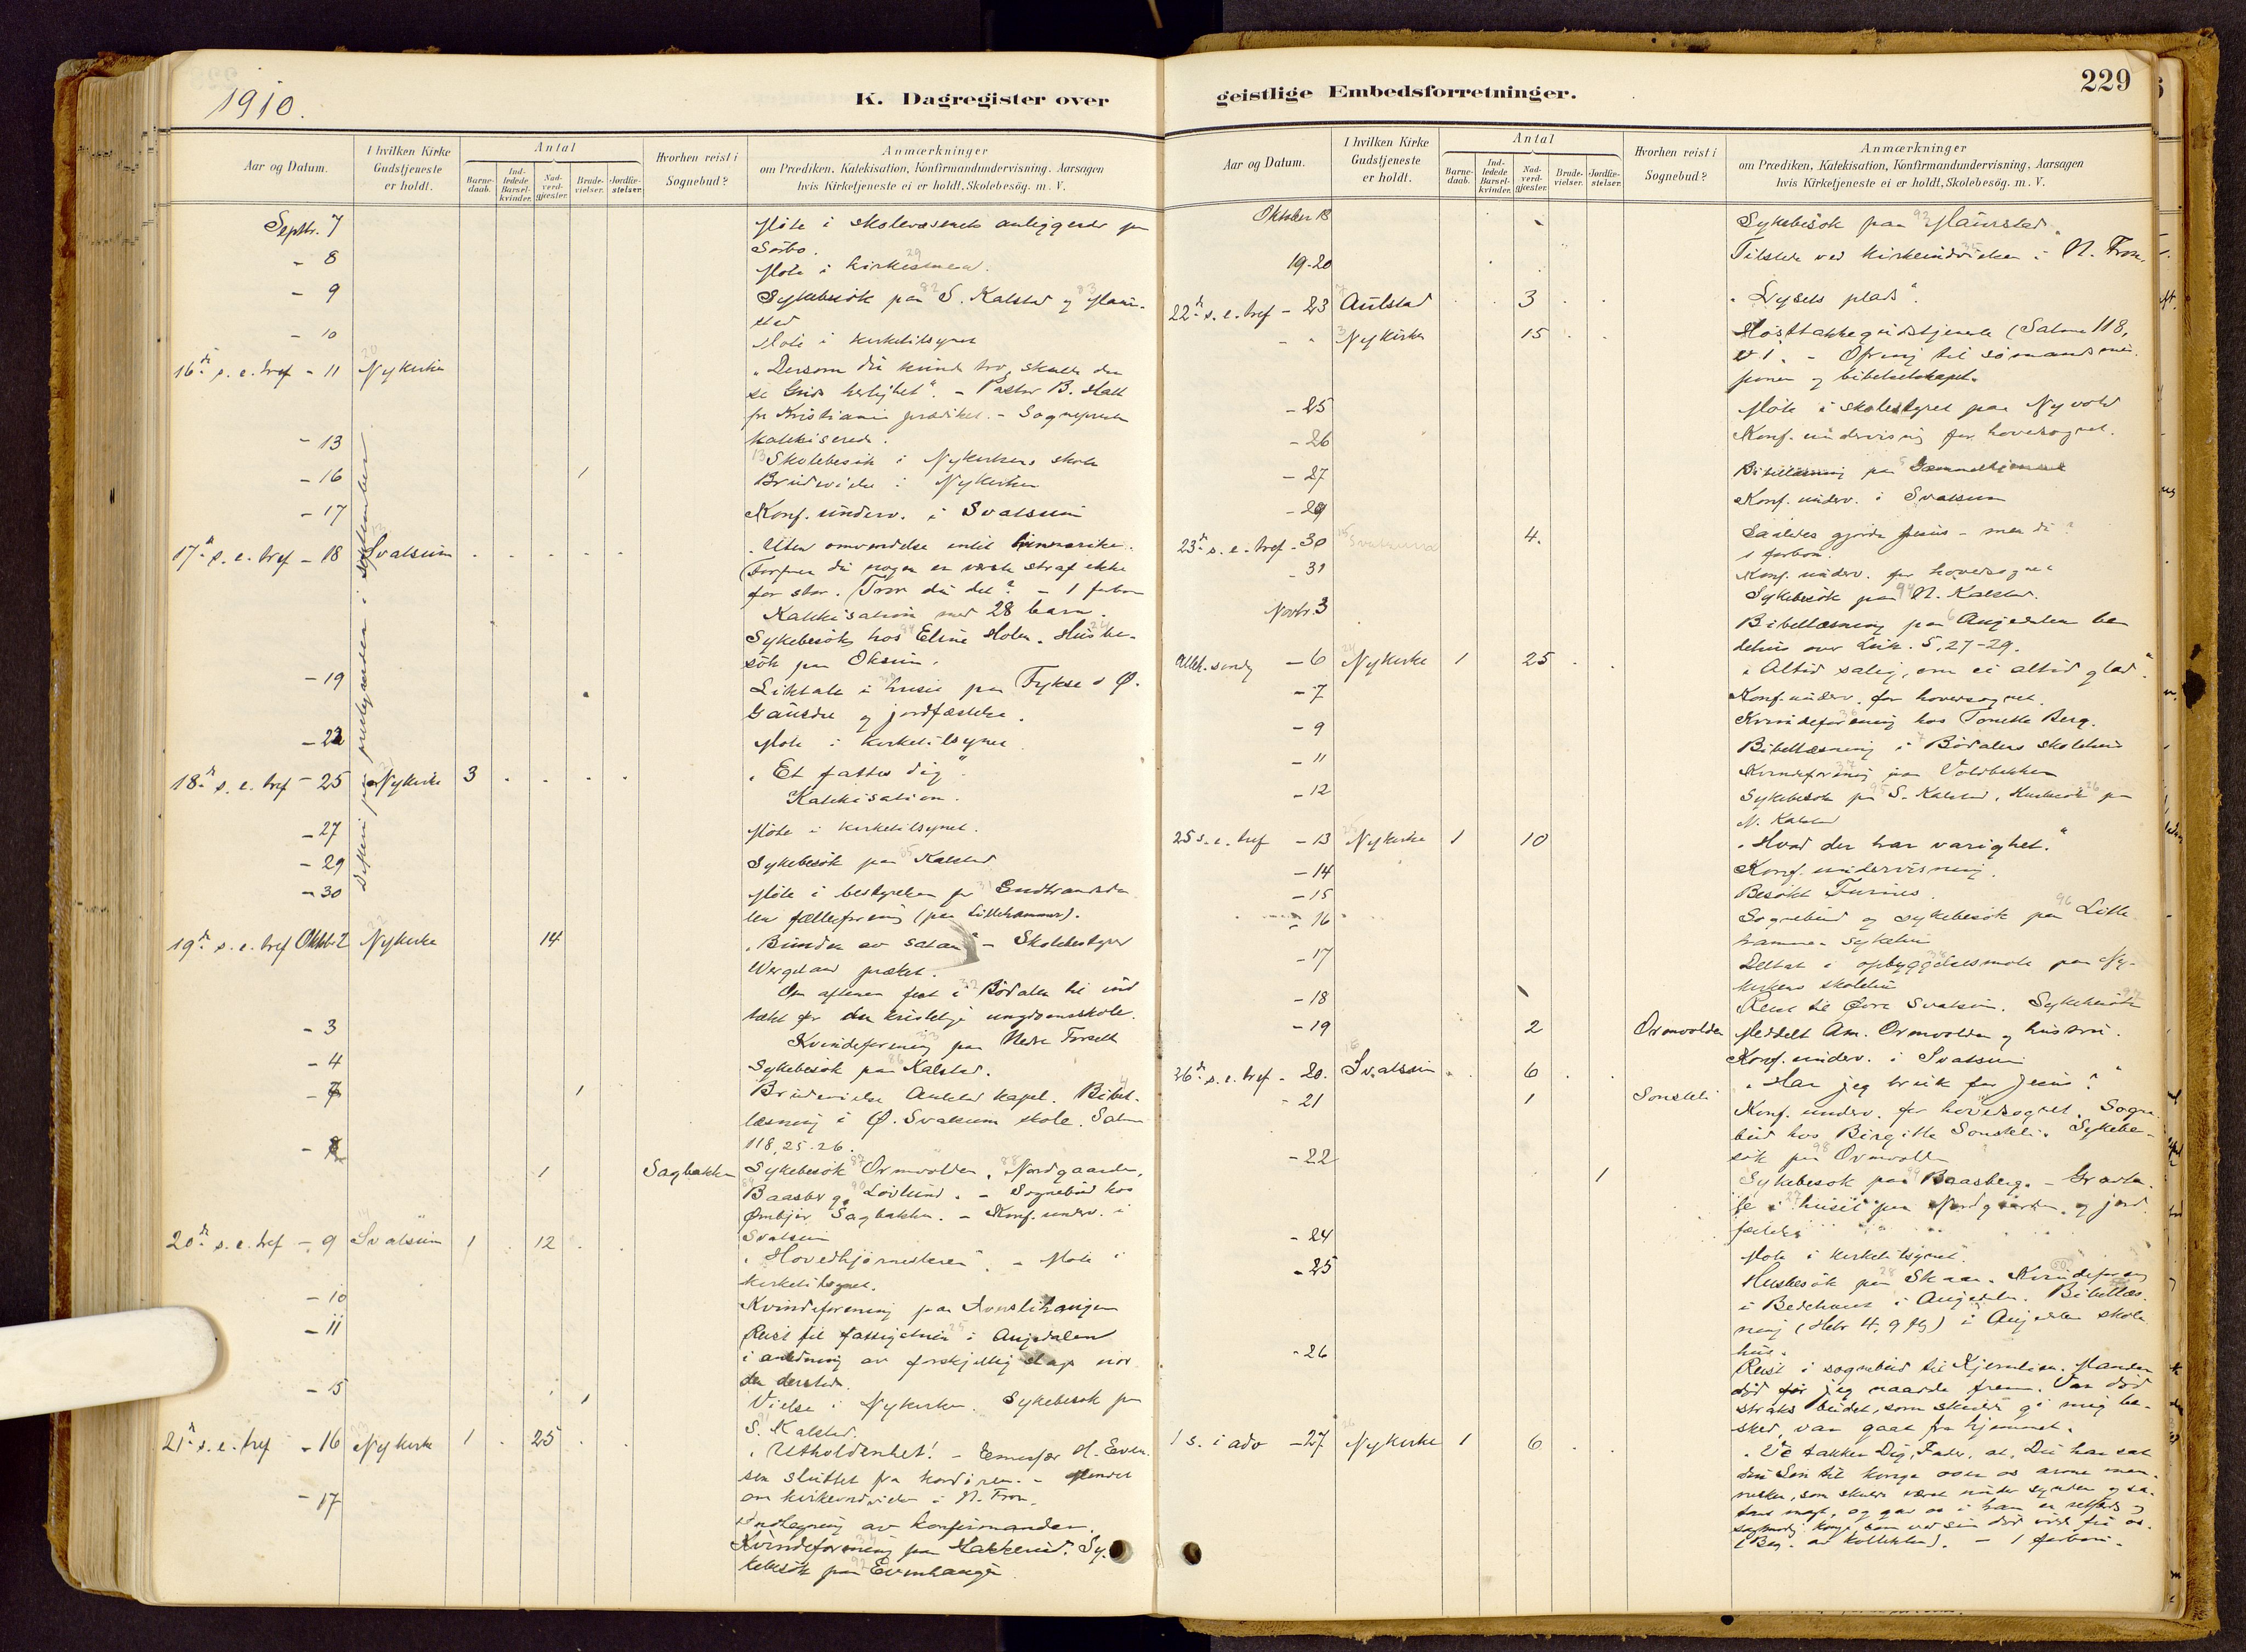 1910.
K. Dagregister over
Aar og Datum.
I hvilken Kirke Gudstjeneste er holdt.
Antal
Barne-daab.
Ind-ledede Barsel-kvinder.
Nad-verd-gjæster.
Brude-vielser.
Jordfæ-stelser.
Hvorhen reist i Sognebud?
Anmærkninger
om Prædiken, Katekisation, Konfirmandundervisning, Aarsagen
hvis Kirketjeneste ei er holdt, Skolebesög. m. V.
Septbr. 7 Møte i skolevæsenets anliggender paa
Sörbo.
- 8 Møte i kirkestuen.
- 9 Sykebesök paa S. Kalstad og Maur-
stad
- 10 Møte i kirketilsynet
16de s. e. tref - 11 Nykirke „Dersom du kunde tro, skulde du
se Guds herlighet". - Pastor B. Hall
fr Kristiania prædiket. - Sognepresten
katekiserede.
- 13 Skolebesök i Nykirkens skole
- 16 1 Brudevielse i Nykirken
- 17 Konf. underv. i Svatsum
17de s. e. tref - 18 Svatsum Uten omvendelse intet himmerike.
for stor. (Tror du det? - 1 forbön
Katekisation med 28 barn.
Sykebesök hos Eline Holen. Husbe-
sök paa Oksum.
- 19 Liktale i huset paa Fykse i Ø.
Gausdal og jordfæstelse.
- 22 Møte i kirketilsynet
18de s. e. tref - 25 Nykirke 3 „Et fattes dig".
Katekisation.
- 27 Møte i kirketilsynet.
- 29 Sykebesök paa Kalstad
- 30 Møte i bestyrelsen for Gudbrandsda-
len fællesforening (paa Lillehammer).
19de s. e. tref Oktbr. 2 Nykirke 14 „Bunden av satan" - Skolebestyrer
Wergeland præket.
Om aftenen fest i Bödalen til ind
tækt for den kristelige ungdomsskole.
- 3 Kvindeforening paa Nedre Forseth
- 4 Sykebesök paa Kalstad.
- 7 1 Brudevielse Aulstad kapel. Bibel-
læsning i Ø. Svatsum skole. Salme
118, 25-26.
- 8 1 Sagbakken Sykebesök Ormvolden, Nordgaarden,
Baasberg, Lövlund. - Sognebud hos
Sagbakken. - Konf. underv. i
Svatsum
20de s. e. tref - 9 Svatsum 1 12 „Hovedhjørnestenen". - Møte i
kirketilsynet.
- 10 Kvindeforening paa
- 11 Reist til fattighuset i Augedalen
i anledning av forskjellig klage
den dersteds.
- 15 1 Vielse i Nykirken. Sykebesök paa
S. Kalstad.
21de s. e. tref - 16 Nykirke 1 25 „Utholdenhet! - Emissær H. Even-
sen sluttet fra kordören. -
om kirkeindvielse i N. Fron.
- 17 Indtegning av konfirmander.
Kvindeforening paa Hakkerud. Sy-
kebesök paa Evenhaugen
geistlige Embedsforretninger.
229
Aar og Datum.
I hvilken Kirke Gudstjeneste er holdt.
Antal
Barne-daab.
Ind-ledede Barsel-kvinder.
Nad-verd-gjæster.
Brude-vielser.
Jordfæ-stelser.
Hvorhen reist i Sognebud?
Anmærkninger
om Prædiken, Katekisation, Konfirmandundervisning, Aarsagen
hvis Kirketjeneste ei er holdt, Skolebesög. m. V.
Oktober 18 Sykebesök paa Maurstad
19-20 Tilstede ved kirkeindvielsen i N. Fron.
22de s. e. tref - 23 Aulstad 3 „Lysets plads".
Nykirke 15 Høsttakkegudstjeneste (Salme 118,
v 1. - Ofring til sömandsmis-
jonen og bibelselskapet.
- 25 Møte i skolestyret paa Nyvold
- 26 Konf. undervisning for hovedsognet.
- 27 Bibellæsning paa
- 29 Konf. underv. i Svatsum
23de s. e. tref. - 30 Svatsum 4. Saaledes gjorde Jesus - men du?
1 forbön.
- 31 Konf. underv. for hovedsognet
Novbr. 3 Sykebesök paa N. Kalstad.
Bibellæsning paa Augedalen be
dehus over Luk. 5, 27-29.
Alleh. sönd - 6 Nykirke 1 25 „Altid salig, om ei altid glad".
- 7 Konf. underv. for hovedsognet.
- 9 Kvindeforening hos Tonette Berg.
Bibellæsning i Bödalens skolehus
- 11 Kvindeforening paa Voldbekken
- 12 Sykebesök paa S. Kalstad. Husbesök paa
N. Kalstad
25 s. e. tref - 13 Nykirke 1 10 „Hvad der har varighet."
- 14 Konf. undervisning.
- 15 Besökt Furnes.
- 16 Sognebud og sykebesök paa Lille-
hammer sykehus
- 17 Deltat i opbyggelsesmöte paa Ny-
kirkens skolehus
- 18 Reist til Övre Svatsum. Sykebesök
- 19 2 Ormvolden Meddelt Am. Ormvolden og hustru.
Konf. underv. i Svatsum
26de s. e. tref - 20. Svatsum 6 „Har jeg bruk for Jesus?"
- 21 1 Sonsteli Konf. underv. for hovedsognet. Sogne-
bud hos Birgitte Sonsteli. Sykebe-
sök paa Ormvolden
- 22 1 Sykebesök paa Baasberg. - Gravta-
le i huset paa Nordgaarden og jord
fæstelse
- 24 Møte i kirketilsynet.
- 25 Husbesök paa Skaar. Kvindeforening
i Bedehuset i Augedalen. Bibellæs-
ning (Hebr 4, 9 flg) i Augedalen skole
hus.
- 26 Reist i sognebud til Kjernlien. Manden
död för jeg naadde frem. Var död
straks budet, som skulde gi mig be-
sked, var gaat fra hjemmet.
1 s. i adv - 27 Nykirke 1 6 „Vi takker Dig, Fader, at Du har sat
din Sön til konge over os arme men-
nesker, som skulde været under synden og sa-
tans magt, og gav os i ham en retfærdig og
sagtmodig konge, som ved sin död
- 1 forbön.